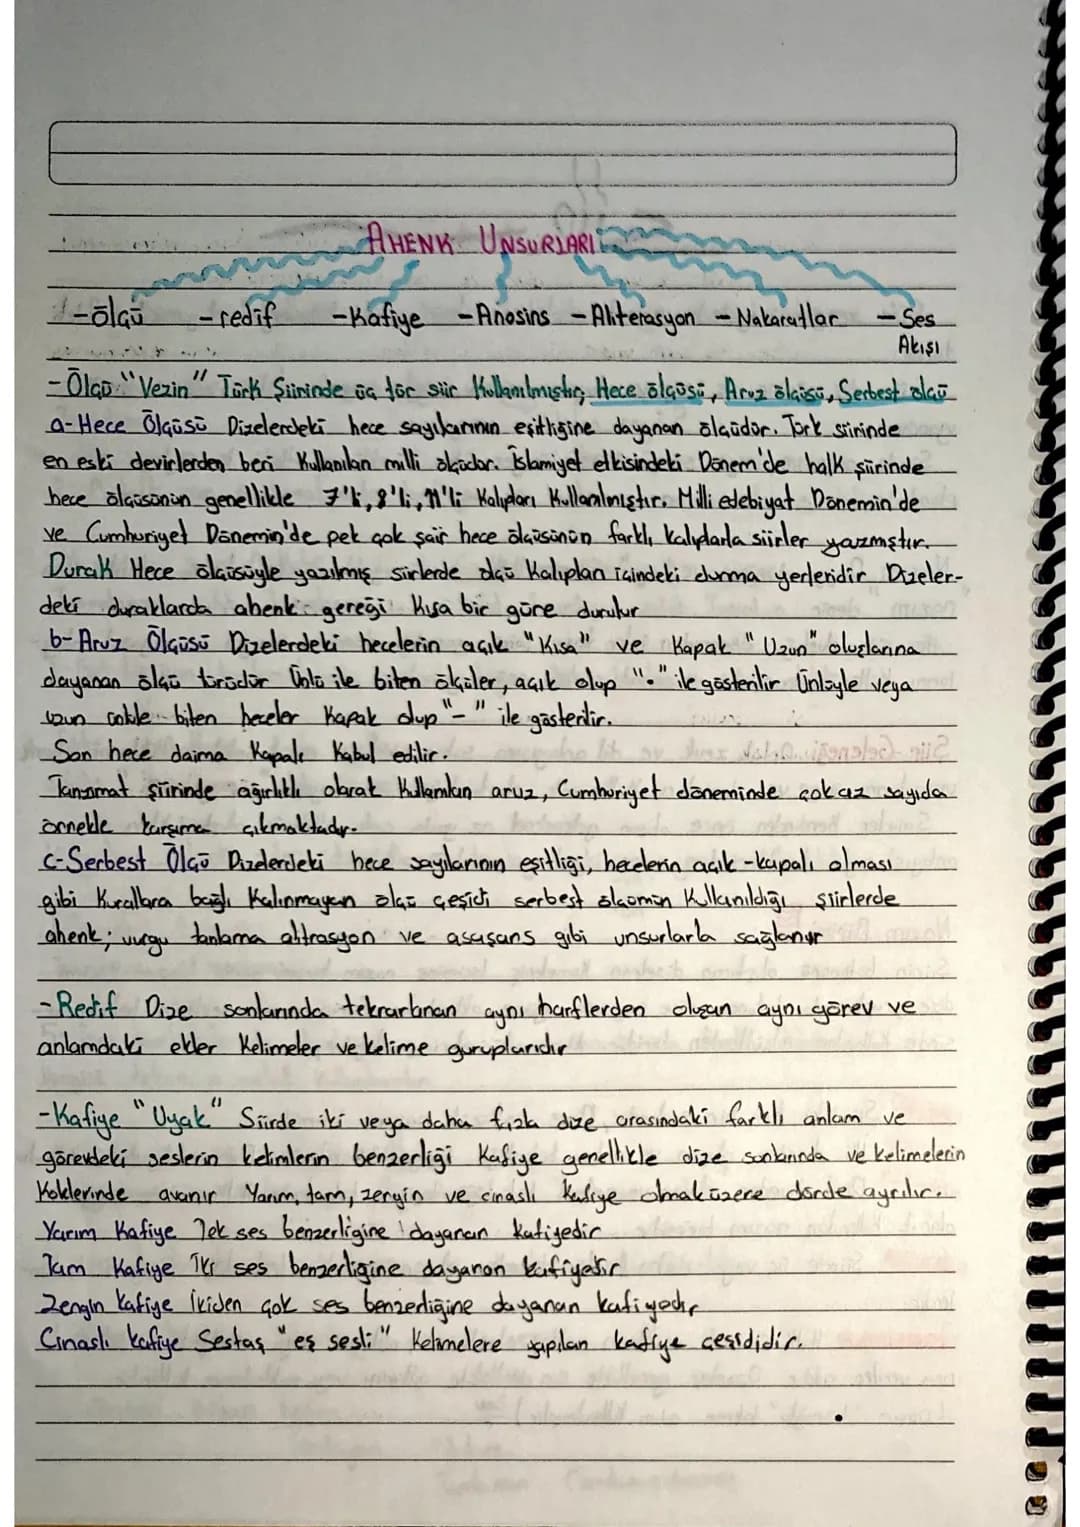 AHENK UNSURLARI
-ölçü -redif -Kafiye -Anosins -Aliterasyon -Nakaratlar -Ses
Akışı
-Ölçü "Vezin" Türk Şiirinde üç tür şiir Kullanılmıştır; Hece ölçüsü, Aruz ölçüsü, Serbest ölçü
a-Hece Ölçüsü Dizelerdeki hece sayılarının eşitliğine dayanan ölçüdür. Türk şiirinde
en eski devirlerden beri Kullanılan milli ölçüdür. İslamiyet etkisindeki Dönem'de halk şiirinde
hece ölçüsünün genellikle 7'li, 8'li, 11'li Kalıpları Kullanılmıştır. Milli edebiyat Dönemin'de
ve Cumhuriyet Dönemin'de pek çok şair hece ölçüsünün farklı kalıplarla şiirler yazmıştır.
Durak Hece ölçüsüyle yazılmış şirlerde ölçü Kalıpları içindeki durma yerleridir Dizeler-
deki duraklarda ahenk gereği Kısa bir güre durulur
b-Aruz Ölçüsü Dizelerdeki hecelerin açık "Kısa" ve Kapak "Uzun" oluşlarına
dayanan ölçü türüdür Ünlü ile biten ölçüler, açık olup "." ile gösterilir Ünlüyle veya
uzun biten heceler Kapak olup "-" ile gösterilir.
Son hece daima Kapalı Kabul edilir.
Tanzimat şiirinde ağırlıklı olarak Kullanılan aruz, Cumhuriyet döneminde çok az sayıda
örnekle karşıma çıkmaktadır.
c-Serbest Ölçü Dizelerdeki hece sayılarının eşitliği, hecelerin açık-kapalı olması
gibi Kurallara bağlı Kalınmayan ölçü çeşidi serbest ölçünün Kullanıldığı şiirlerde
ahenk; vurgu tonlama alitrasyon ve asaşans gibi unsurlarla sağlanır
-Redif Dize sonlarında tekrarlanan aynı harflerden oluşan aynı görev ve
anlamdaki ekler Kelimeler ve kelime guruplarıdır
-Kafiye "Uyak" Şiirde iki veya daha fazla dize arasındaki farklı anlam ve
görevdeki seslerin kelimlerin benzerliği Kafiye genellikle dize sonlarında ve kelimelerin
Köklerinde avanır Yarım, tam, zengin ve cinaslı Kafiye olmak üzere dörde ayrılır.
Yarım Kafiye Tek ses benzerligine dayanan kafiyedir
Tam Kafiye İki ses benzerligine dayanan kafiyedir
Zengin Kafiye İkiden çok ses benzerliğine dayanan kafiyedir
Cinaslı kafiye Sestaş "eş sesli" Kelimelere yapılan kafiye çeşididir.